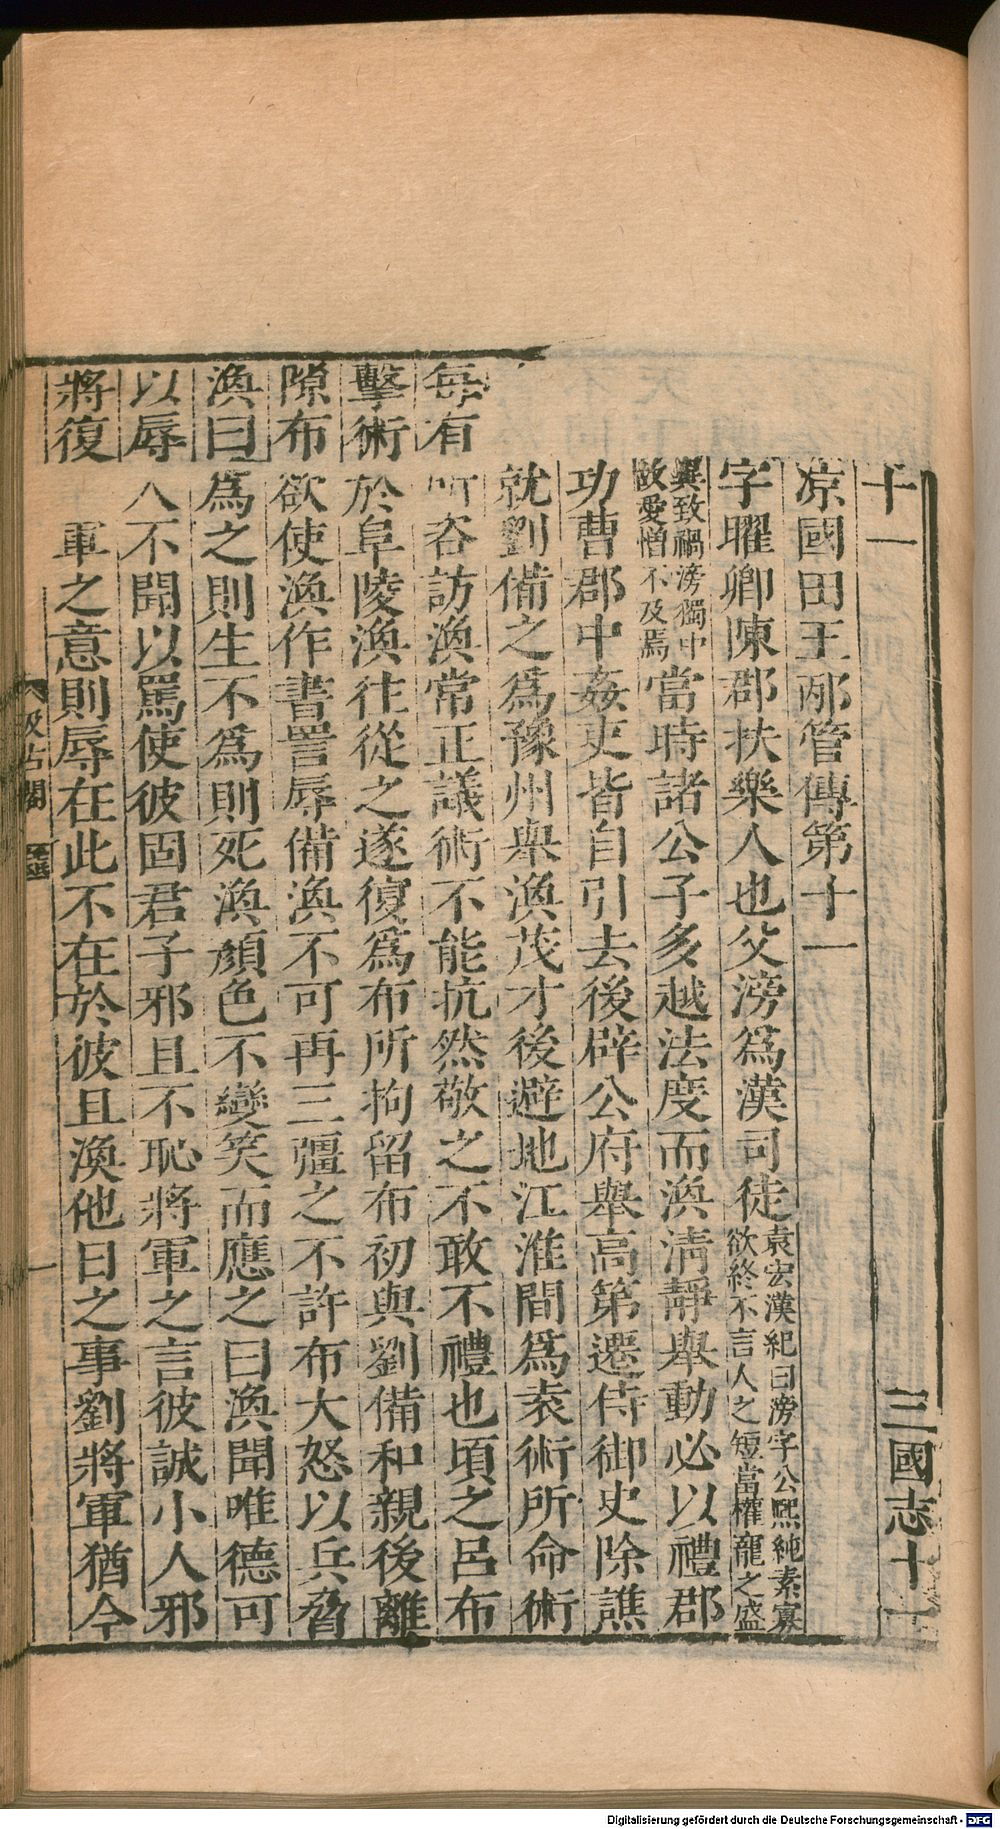 十一　三國志十一
凉國田王邴管傳第十一
字曜卿陳郡扶樂人也父滂爲漢司徒袁宏漢紀曰滂字公熙純素寡
欲終不言人之短當權寵之盛
異致禍滂獨中
故愛憎不及焉當時諸公子多越法度而渙清靜舉動必以禮郡
功曹郡中姦吏皆自引去後辟公府舉高第遷侍御史除譙
就劉備之爲豫州舉渙茂才後避地江淮間爲袁術所命術
每有所咨訪渙常正議術不能抗然敬之不敢不禮也頃之呂布
擊術於阜陵渙往從之遂復爲布所拘留布初與劉備和親後離
隙布欲使渙作書詈辱備渙不可再三彊之不許布大怒以兵脅
渙曰爲之則生不爲則死渙顏色不變笑而應之曰渙聞唯德可
以辱人不聞以罵使彼固君子邪且不恥將軍之言彼誠小人邪
將復軍之意則辱在此不在於彼且渙他日之事劉將軍猶今
汲古閣　一
Digitalisierung gefördert durch die Deutsche Forschungsgemeinschaft - DFG